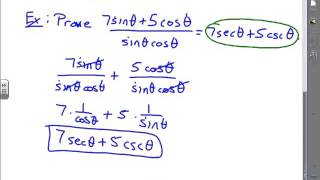 Ex: Prove (7sinθ+5cosθ)/(sinθcosθ) = 7secθ+5cscθ
7sinθ/(sinθcosθ) + 5cosθ/(sinθcosθ)
7·1/cosθ + 5·1/sinθ
7secθ+5cscθ